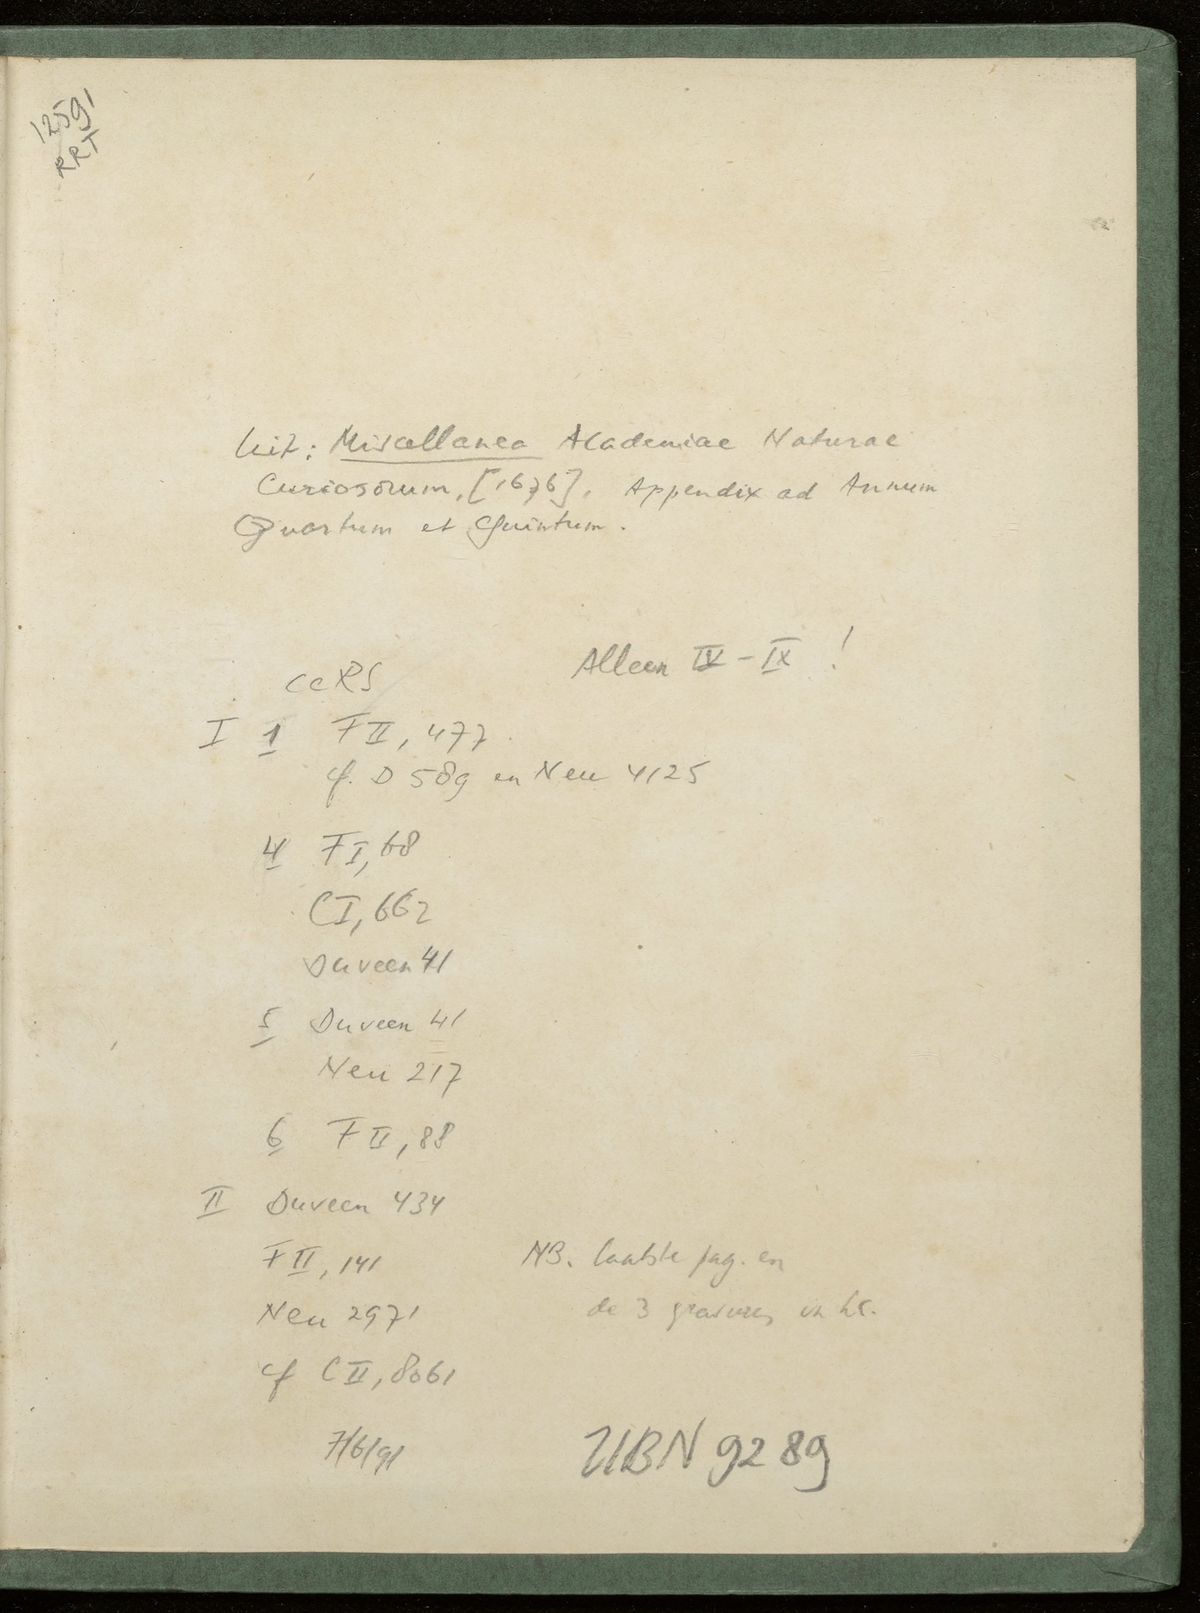 12591
RRT
Uit: Miscellanea Academiae Naturae
Curiosorum, [1676], Appendix ad Annum
Quartum et Quintum.
Alleen IV - IX !
CCRS
I 1 F II, 477
cf. D 589 en Neu 4125
4 F I, 68
C I, 662
Duveen 41
5 Duveen 41
Neu 217
6 F II, 88
II Duveen 434
F II, 141
NB. laatste pag. en
Neu 2971
de 3 gravures in hs.
cf C II, 8061
7/6/91
UBN 9289